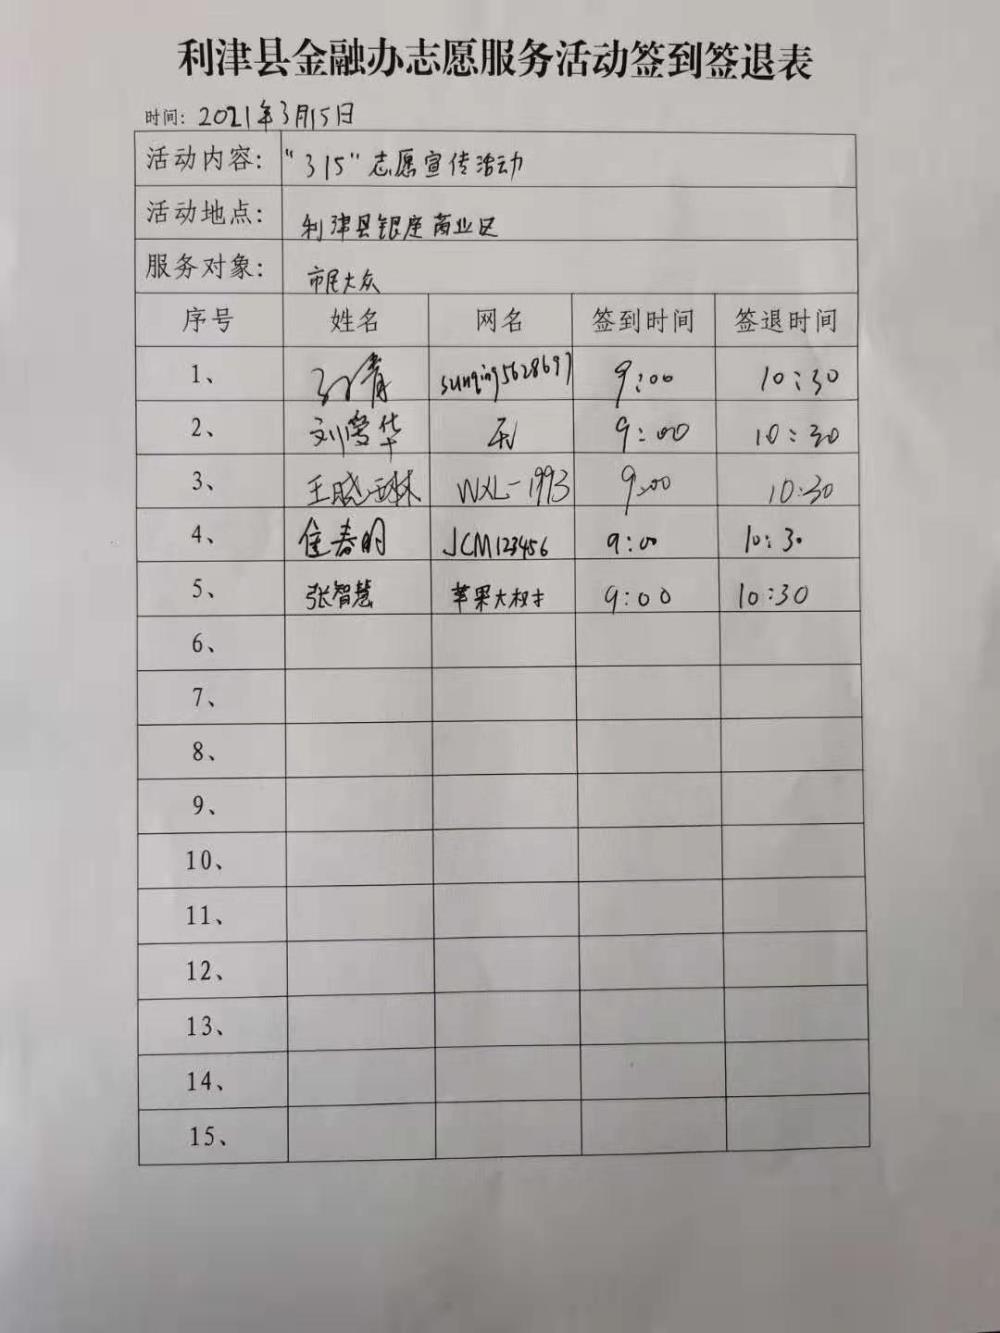 利津县金融办志愿服务活动签到签退表
时间：2021年3月15日
活动内容： “315”志愿宣传活动
活动地点： 利津县银座商业区
服务对象： 市民大众
序号 姓名 网名 签到时间 签退时间
1、 孙青 sunqing5628697 9:00 10:30
2、 刘雪华 9:00 10:30
3、 王晓琳 WXL-1993 9:00 10:30
4、 春明 JCM123456 9:00 10:30
5、 张智慧 苹果大权 9:00 10:30
6、
7、
8、
9、
10、
11、
12、
13、
14、
15、